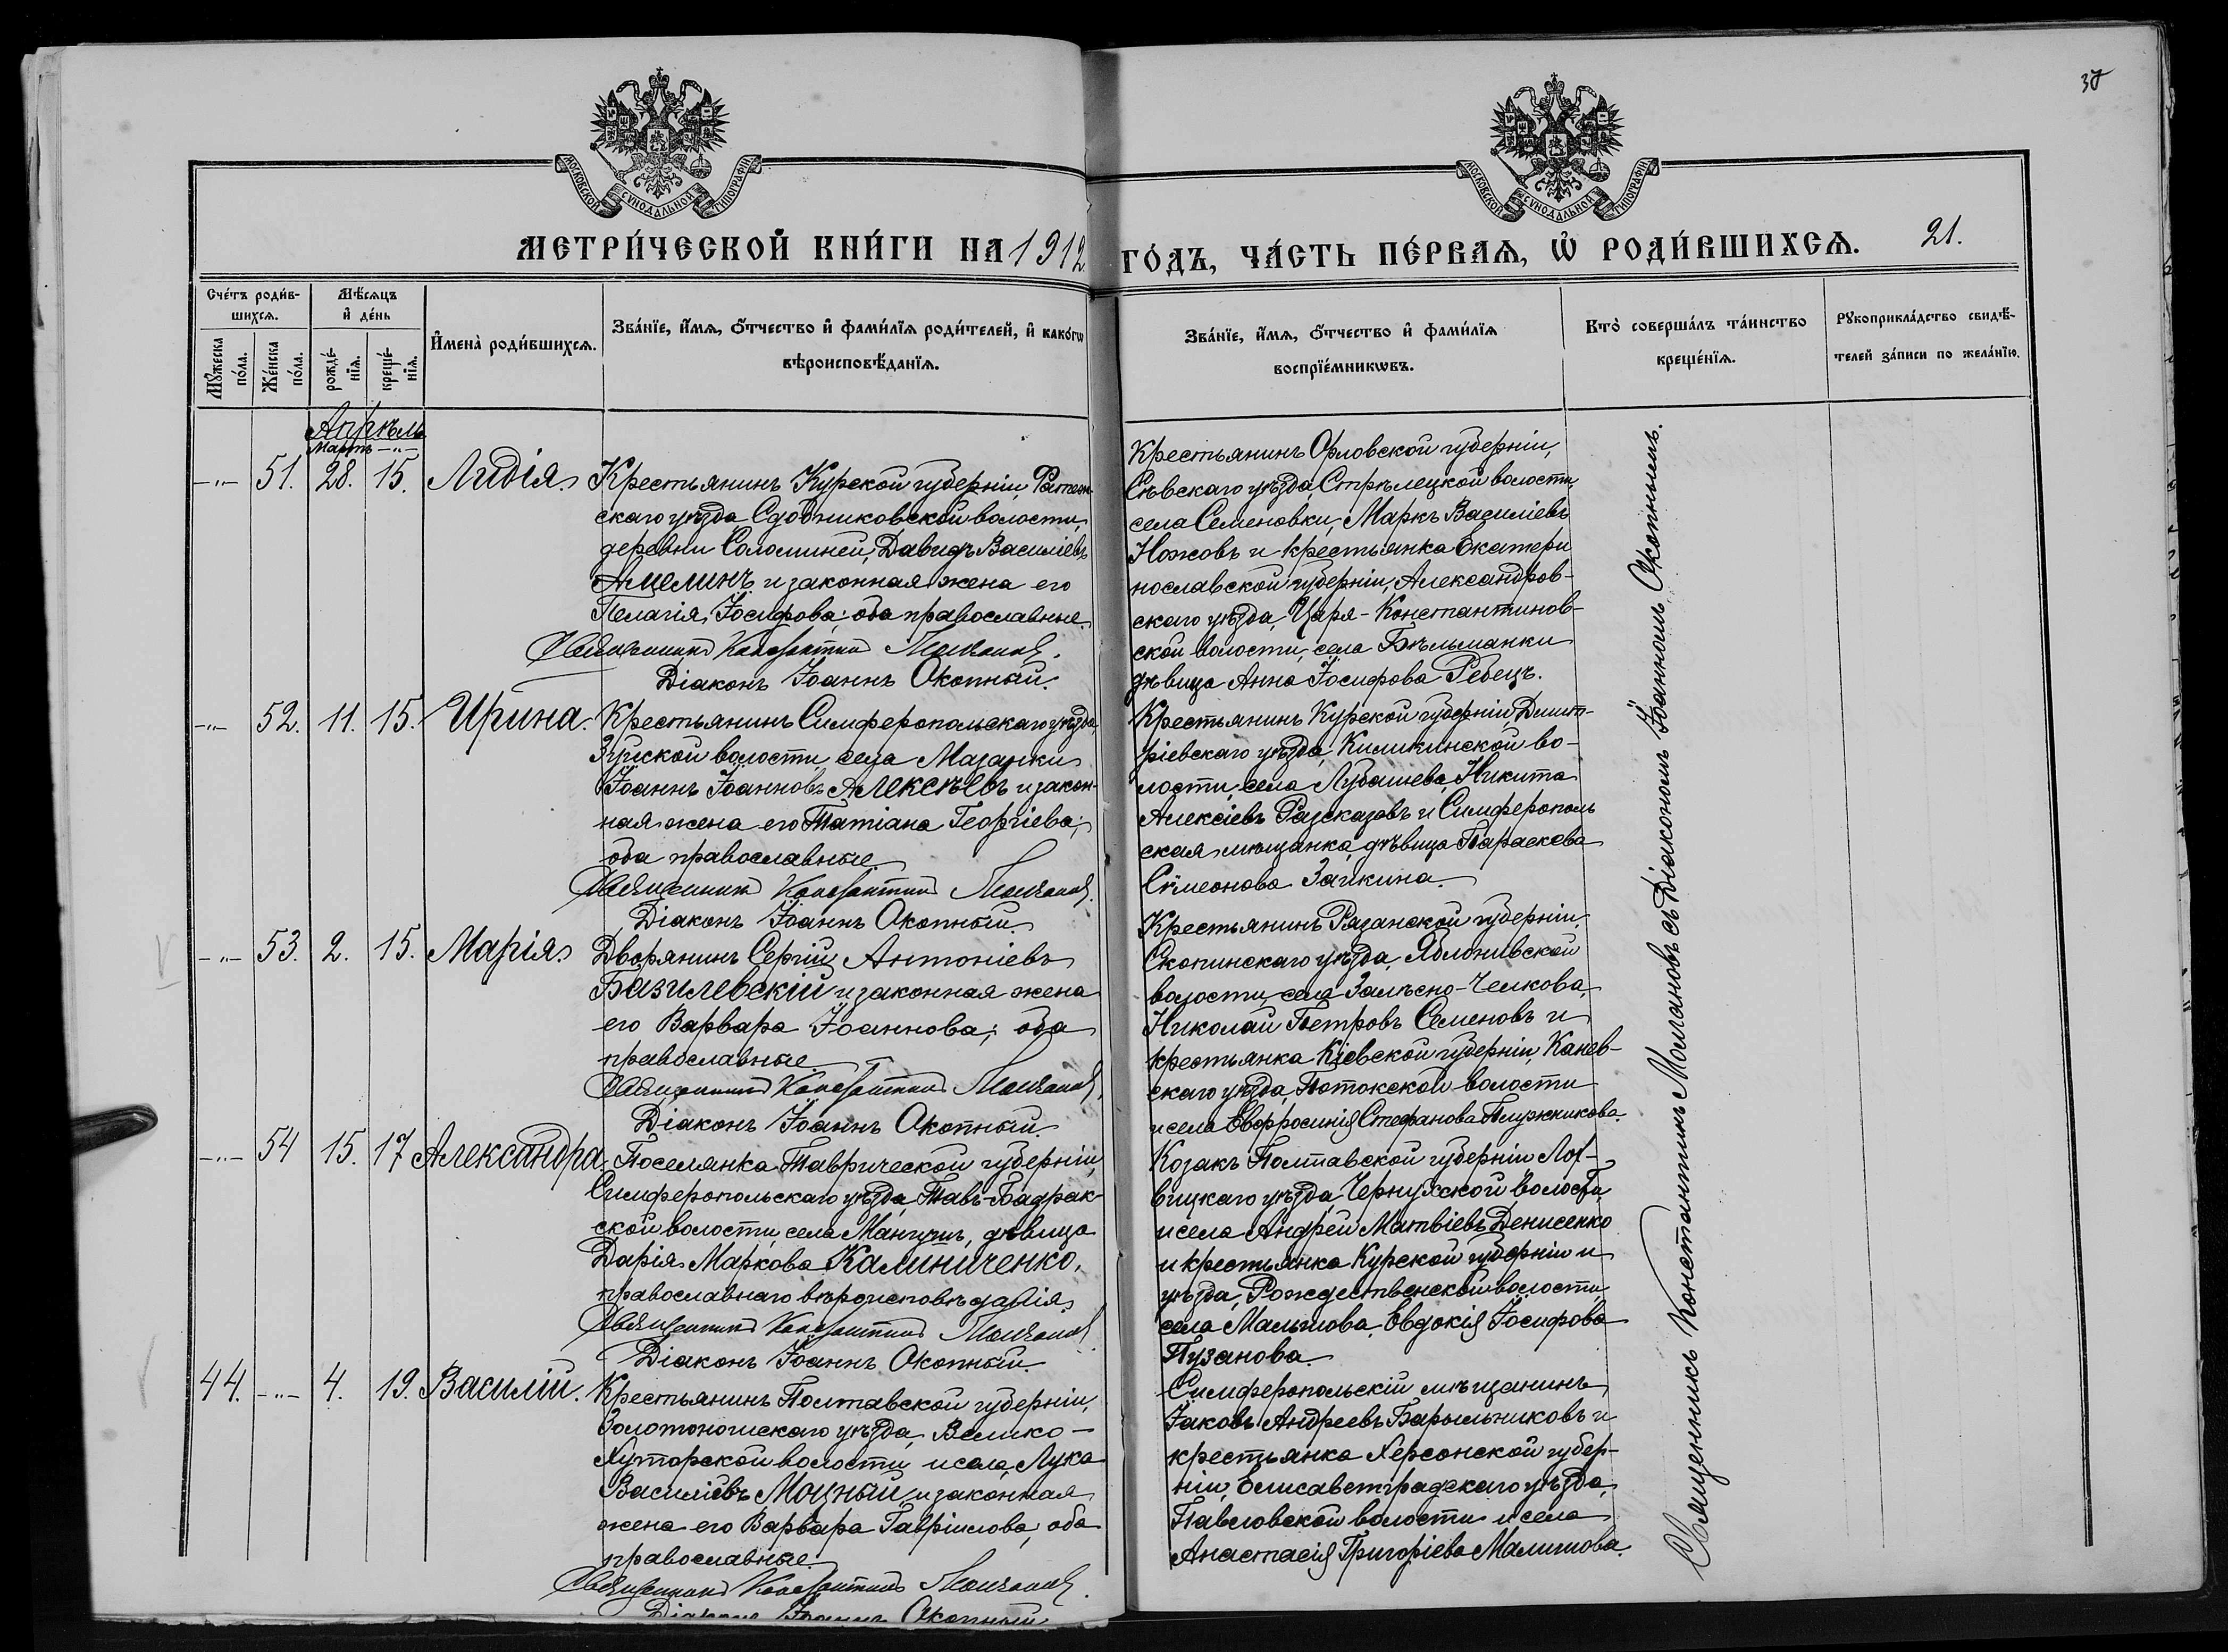 30
МОСКОВСКОЙ СѴНОДАЛЬНОЙ ТИПОГРАФІИ
МОСКОВСКОЙ СѴНОДАЛЬНОЙ ТИПОГРАФІИ
МЕТРИ́ЧЕСКОЙ КНИ́ГИ НА 1912
ГО́ДЪ, ЧА́СТЬ ПЕ́РВАѦ, Ѡ҆ РОДИ́ВШИХСѦ. 21.
Сче́тъ роди́в-
шихсѧ.
Мꙋ́жеска
по́ла.
Же́нска
по́ла.
Мѣ́сѧцъ
и҆ де́нь
рожде́-
нїѧ.
креще́-
нїѧ.
И҆мена̀ роди́вшихсѧ.
Зва́нїе, и҆́мѧ, ѻ҆́тчество и҆ фами́лїѧ роди́телей, и҆ како́гѡ
вѣроисповѣ́данїѧ.
Зва́нїе, и҆́мѧ, ѻ҆́тчество и҆ фами́лїѧ
воспрїе́мникѡвъ.
Кто̀ соверша́лъ та́инство
креще́нїѧ.
Рꙋкоприкла́дство свидѣ́-
телей за́писи по жела́нїю.
Апрѣль
Мартъ -"-
-"- 51. 28. 15. Лидія.
Крестьянинъ Курской губерніи,
скаго уѣзда Сдобниковской волости,
деревни Соломиной, Давидъ Василіевъ
Амелинъ и законная жена его
Пелагія Іосифова; оба православные.
Священникъ Константинъ Молчановъ.
Діаконъ Іоаннъ Окопный.
Крестьянинъ Орловской губерніи,
Сѣвскаго уѣзда, Стрѣлецкой волости,
села Семеновки, Маркъ Василіевъ
Ножовъ и крестьянка Екатери
нославской губерніи, Александров-
скаго уѣзда, Царя-Константинов-
ской волости, села Бѣльманки
дѣвица Анна Іосифова Ребецъ.
-"- 52. 11. 15. Ирина.
Крестьянинъ Симферопольскаго уѣзда,
Зуйской волости, села Мазанки
Іоаннъ Іоанновъ Алексѣевъ и закон-
ная жена его Татіана Георгіева;
оба православные
Священникъ Константинъ Молчановъ.
Діаконъ Іоаннъ Окопный.
Крестьянинъ Курской губерніи, Димит-
ріевскаго уѣзда, Киликинской во-
лости, села Лубашева, Никита
Алексіевъ Разсказовъ и Симферополь
ская мѣщанка, дѣвица Параскева
Сѵмеонова Заикина.
-"- 53. 2. 15. Марія.
Дворянинъ Сергій Антоніевъ
Базилевскій и законная жена
его Варвара Іоаннова; оба
православные
Священникъ Константинъ Молчановъ.
Діаконъ Іоаннъ Окопный.
Крестьянинъ Рязанской губерніи.
Скопинскаго уѣзда, Яблонивской
волости, села Залѣсно-Челкова,
Николай Петровъ Семеновъ и
крестьянка Кіевской губерніи, Канев-
скаго уѣзда, Потокской волости
и села Евфросинія Стефанова Плужникова.
-"- 54 15. 17 Александра
Поселянка Таврической губерніи,
Симферопольскаго уѣзда, Тавъ-Бадрак-
ской волости, села Мангушъ, дѣвица
Дарія Маркова Калиниченко,
православнаго вѣроисповѣданія.
Священникъ Константинъ Молчановъ
Діаконъ Іоаннъ Окопный.
Козакъ Полтавской губерніи Лох-
вицкаго уѣзда, Чернухской волости,
и села Андрей Матвіевъ Денисенко
и крестьянка Курской губерніи и
уѣзда, Рождественской волости,
села Малышова, Евдокія Іосифова
Пузанова.
44. -"- 4. 19. Василій.
Крестьянинъ Полтавской губерніи,
Золотоношскаго уѣзда, Велико-
Хуторской волости и села, Лука
Василіевъ Моцный и законная
жена его Варвара Гавріилова, оба
православные.
Священникъ Константинъ Молчановъ.
Діаконъ Іоаннъ Окопный
Симферопольскій мѣщанинъ
Іаковъ Андреевъ Барыльниковъ и
крестьянка Херсонской губер-
ніи, Елисаветградскаго уѣзда,
Павловской волости и села
Анастасія Григоріева Малышова.
Священникъ Константинъ Молчановъ съ Діакономъ Іоанномъ Окопнымъ.